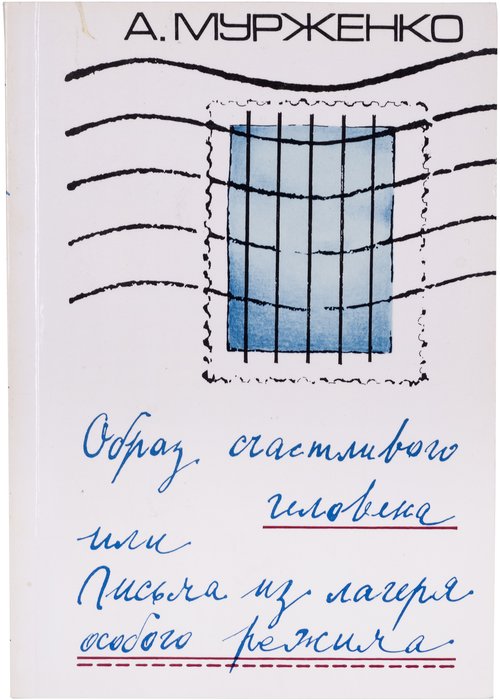 А. МУРЖЕНКО
Образ счастливого
человека
или
Письма из лагеря
особого режима